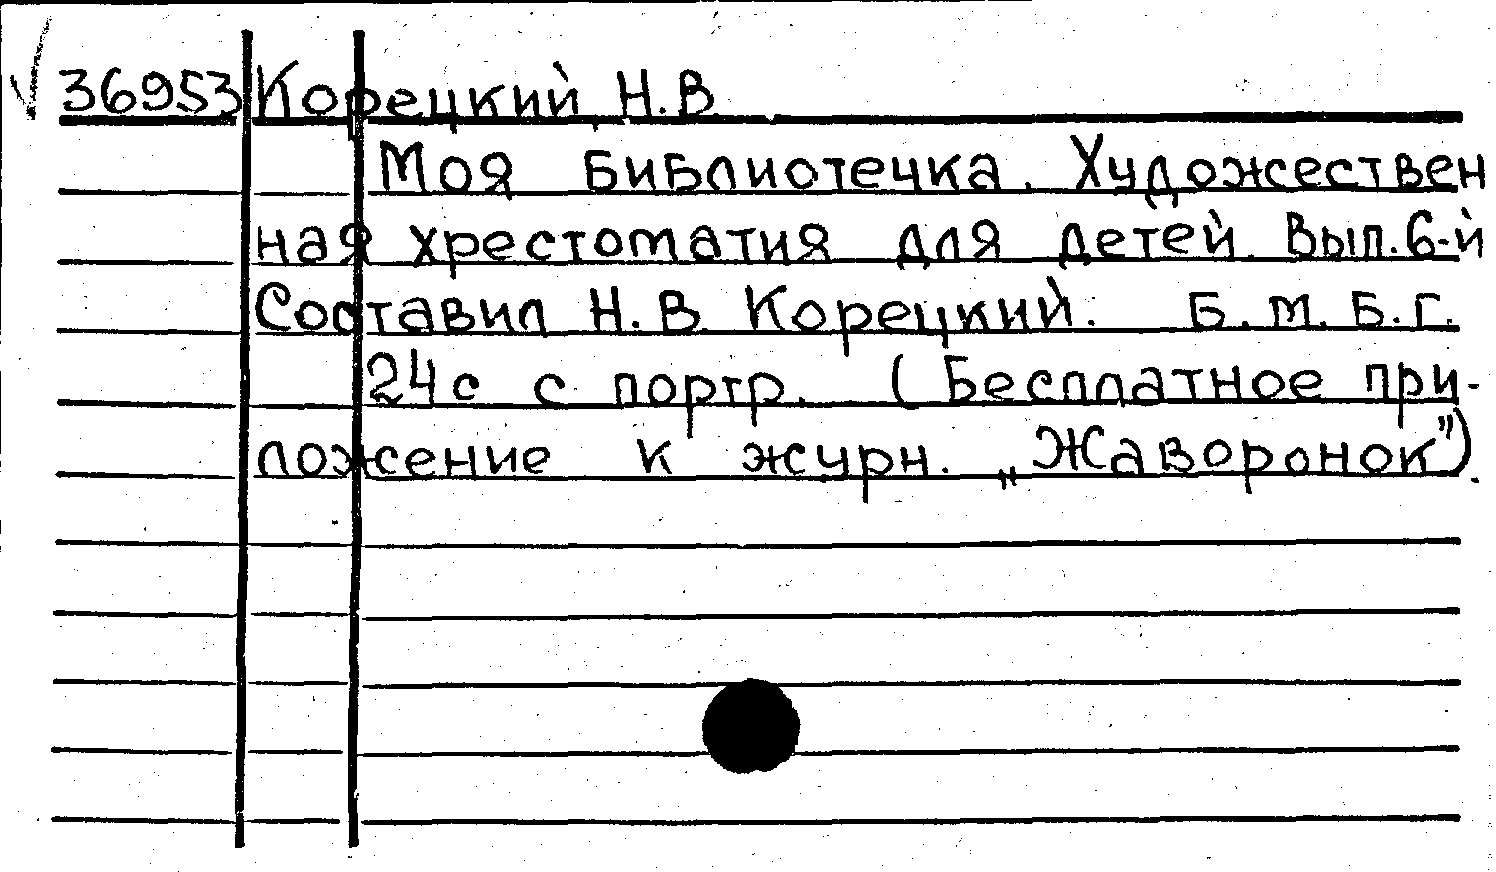 36953 Корецкий, Н.В.
Моя библиотечка. Художествен
ная хрестоматия для детей. Вып. 6-й
Составил Н.В. Корецкий. Б.м. Б.г.
24с с портр. (Бесплатное при-
ложение к журн. „Жаворонок").